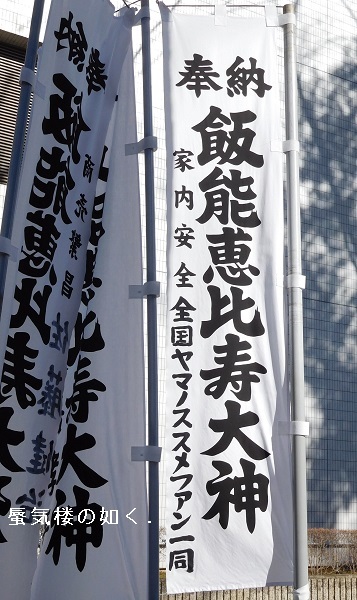 奉納
飯能恵比寿大神
家内安全
全国ヤマノススメファン一同
奉納
飯能恵比寿大
商売繁昌
佐藤
比寿大神
蜃気楼の如く.